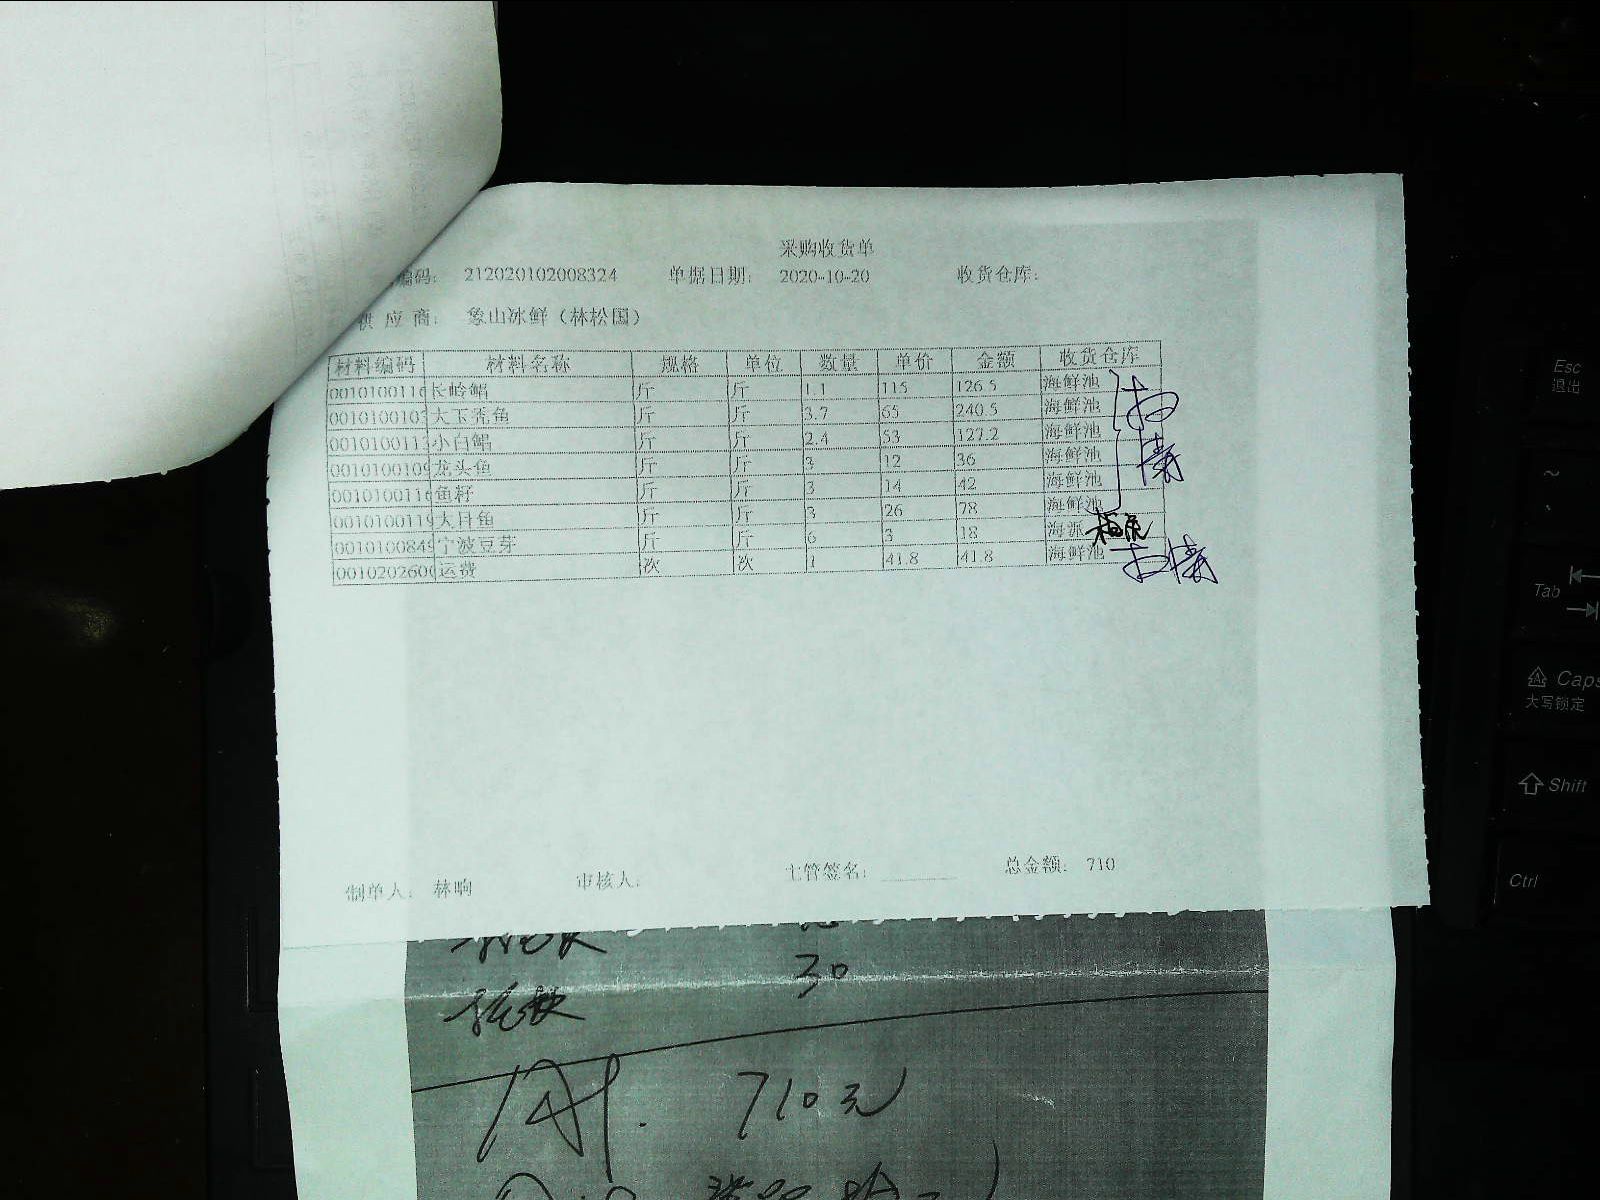 采购收货单
编码: 212020102008324 单据日期: 2020-10-20 收货仓库:
供应商: 象山冰鲜(林松国)
材料编码 材料名称 规格 单位 数量 单价 金额 收货仓库
001010011 长岭鲳 斤 斤 1.1 115 126.5 海鲜池
001010010 大玉秃鱼 斤 斤 3.7 65 240.5 海鲜池
001010011 小白鲳 斤 斤 2.4 53 127.2 海鲜池
001010010 龙头鱼 斤 斤 3 12 36 海鲜池
001010011 鱼籽 斤 斤 3 14 42 海鲜池
001010011 大目鱼 斤 斤 3 26 78 海鲜池
001010084 宁波豆芽 斤 斤 6 3 18 海派
001020260 运费 次 次 1 41.8 41.8 海鲜池
制单人: 林响 审核人: 主管签名: 总金额: 710
30
710元
Esc
退出
~
Tab
Caps
大写锁定
Shift
Ctrl